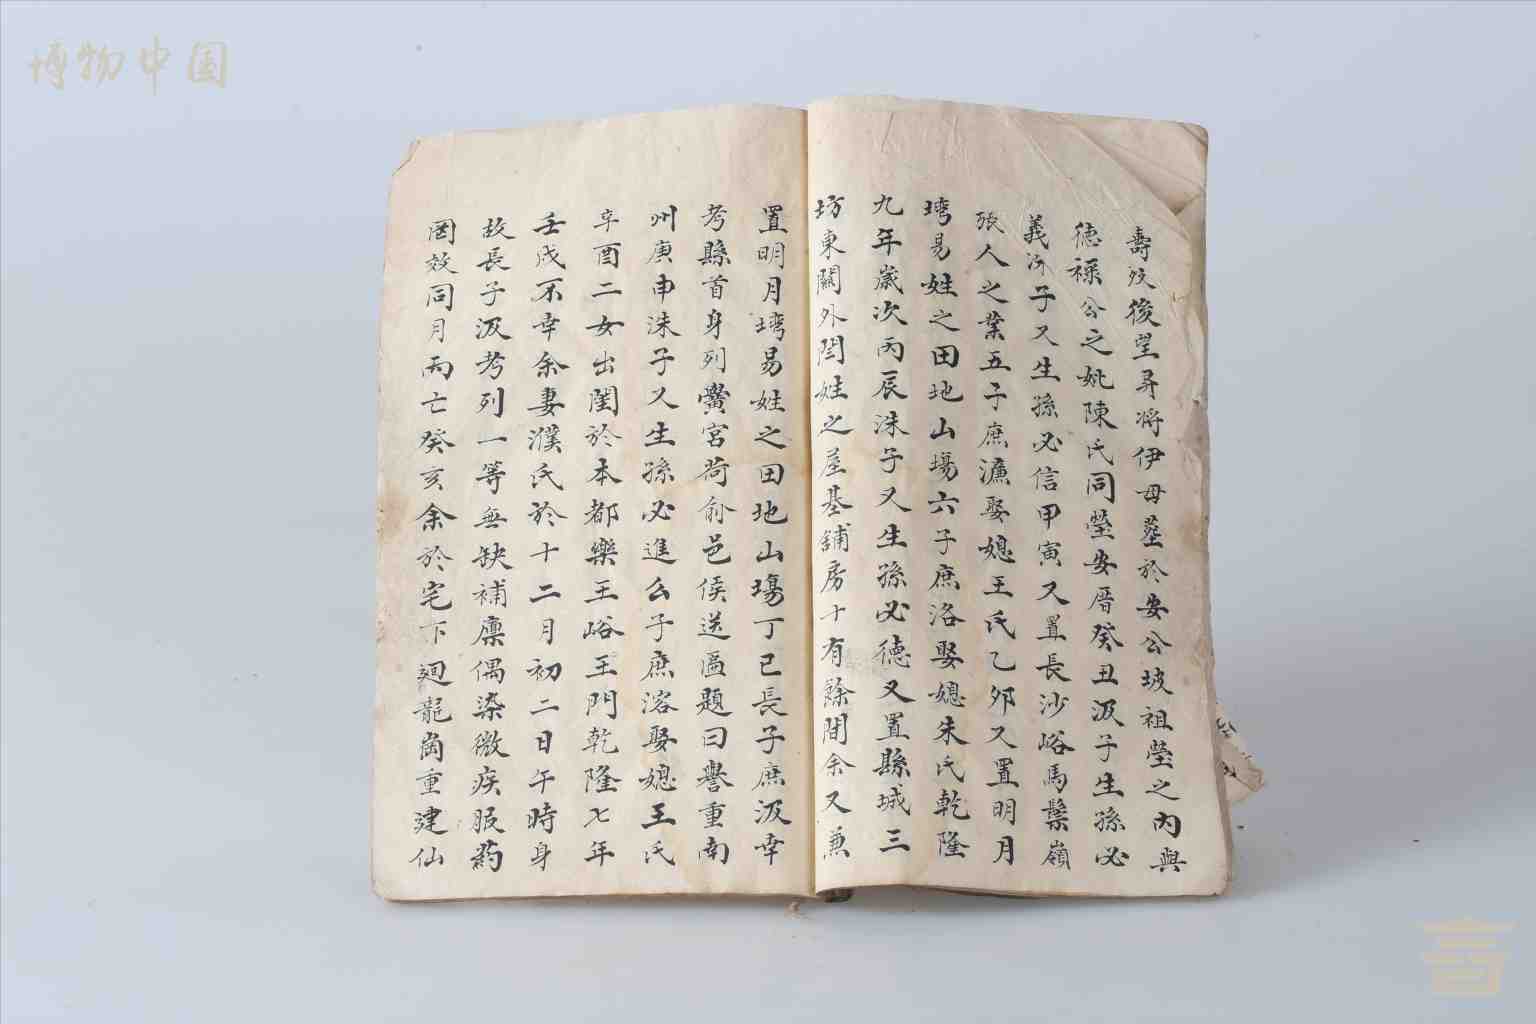 博物中国
壽歿後望尋將伊母塟於安公坡祖塋之內與
德祿公之妣陳氏同塋安厝癸丑汲子生孫必
義沠子又生孫必信甲寅又置長沙峪馬鬃嶺
張人之業五子庶濂娶媳王氏乙夘又置明月
塆易姓之田地山塲六子庶洛娶媳朱氏乾隆
九年歲次丙辰洙子又生孫必德又置縣城三
坊東關外閆姓之屋基舖房十有餘間余又兼
置明月塆易姓之田地山塲丁巳長子庶汲幸
考縣首身列黌宮荷俞邑侯送匾題曰譽重南
州庚申洙子又生孫必進么子庶溶娶媳王氏
辛酉二女出閨於本都樂王峪王門乾隆七年
壬戌不幸余妻濮氏於十二月初二日午時身
故長子汲考列一等無缺補廩偶染微疾服葯
罔效同月而亡癸亥余於宅下迴龍崗重建仙